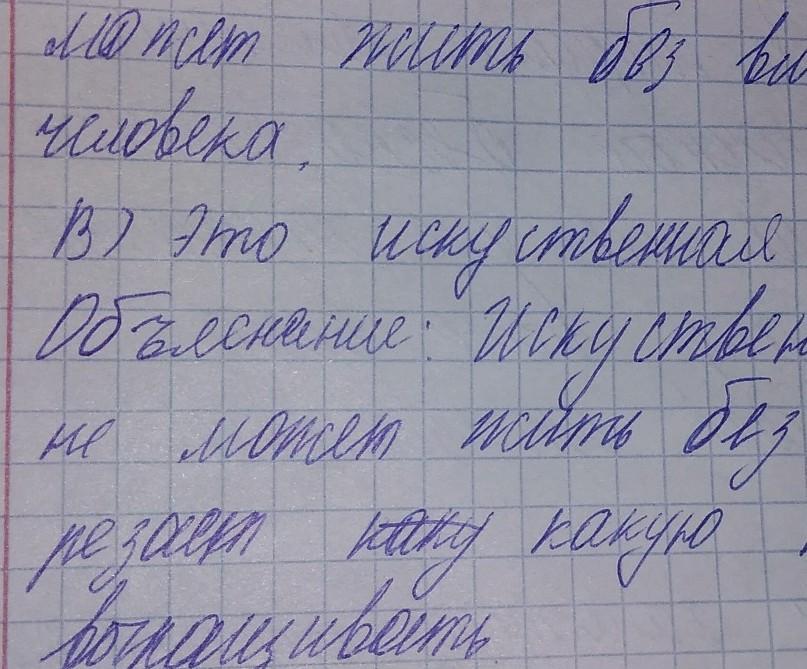 может жить без
человека.
В) Это искуственная
Объяснание: Искуствен
не может жить без
резает каку какую
выращивать